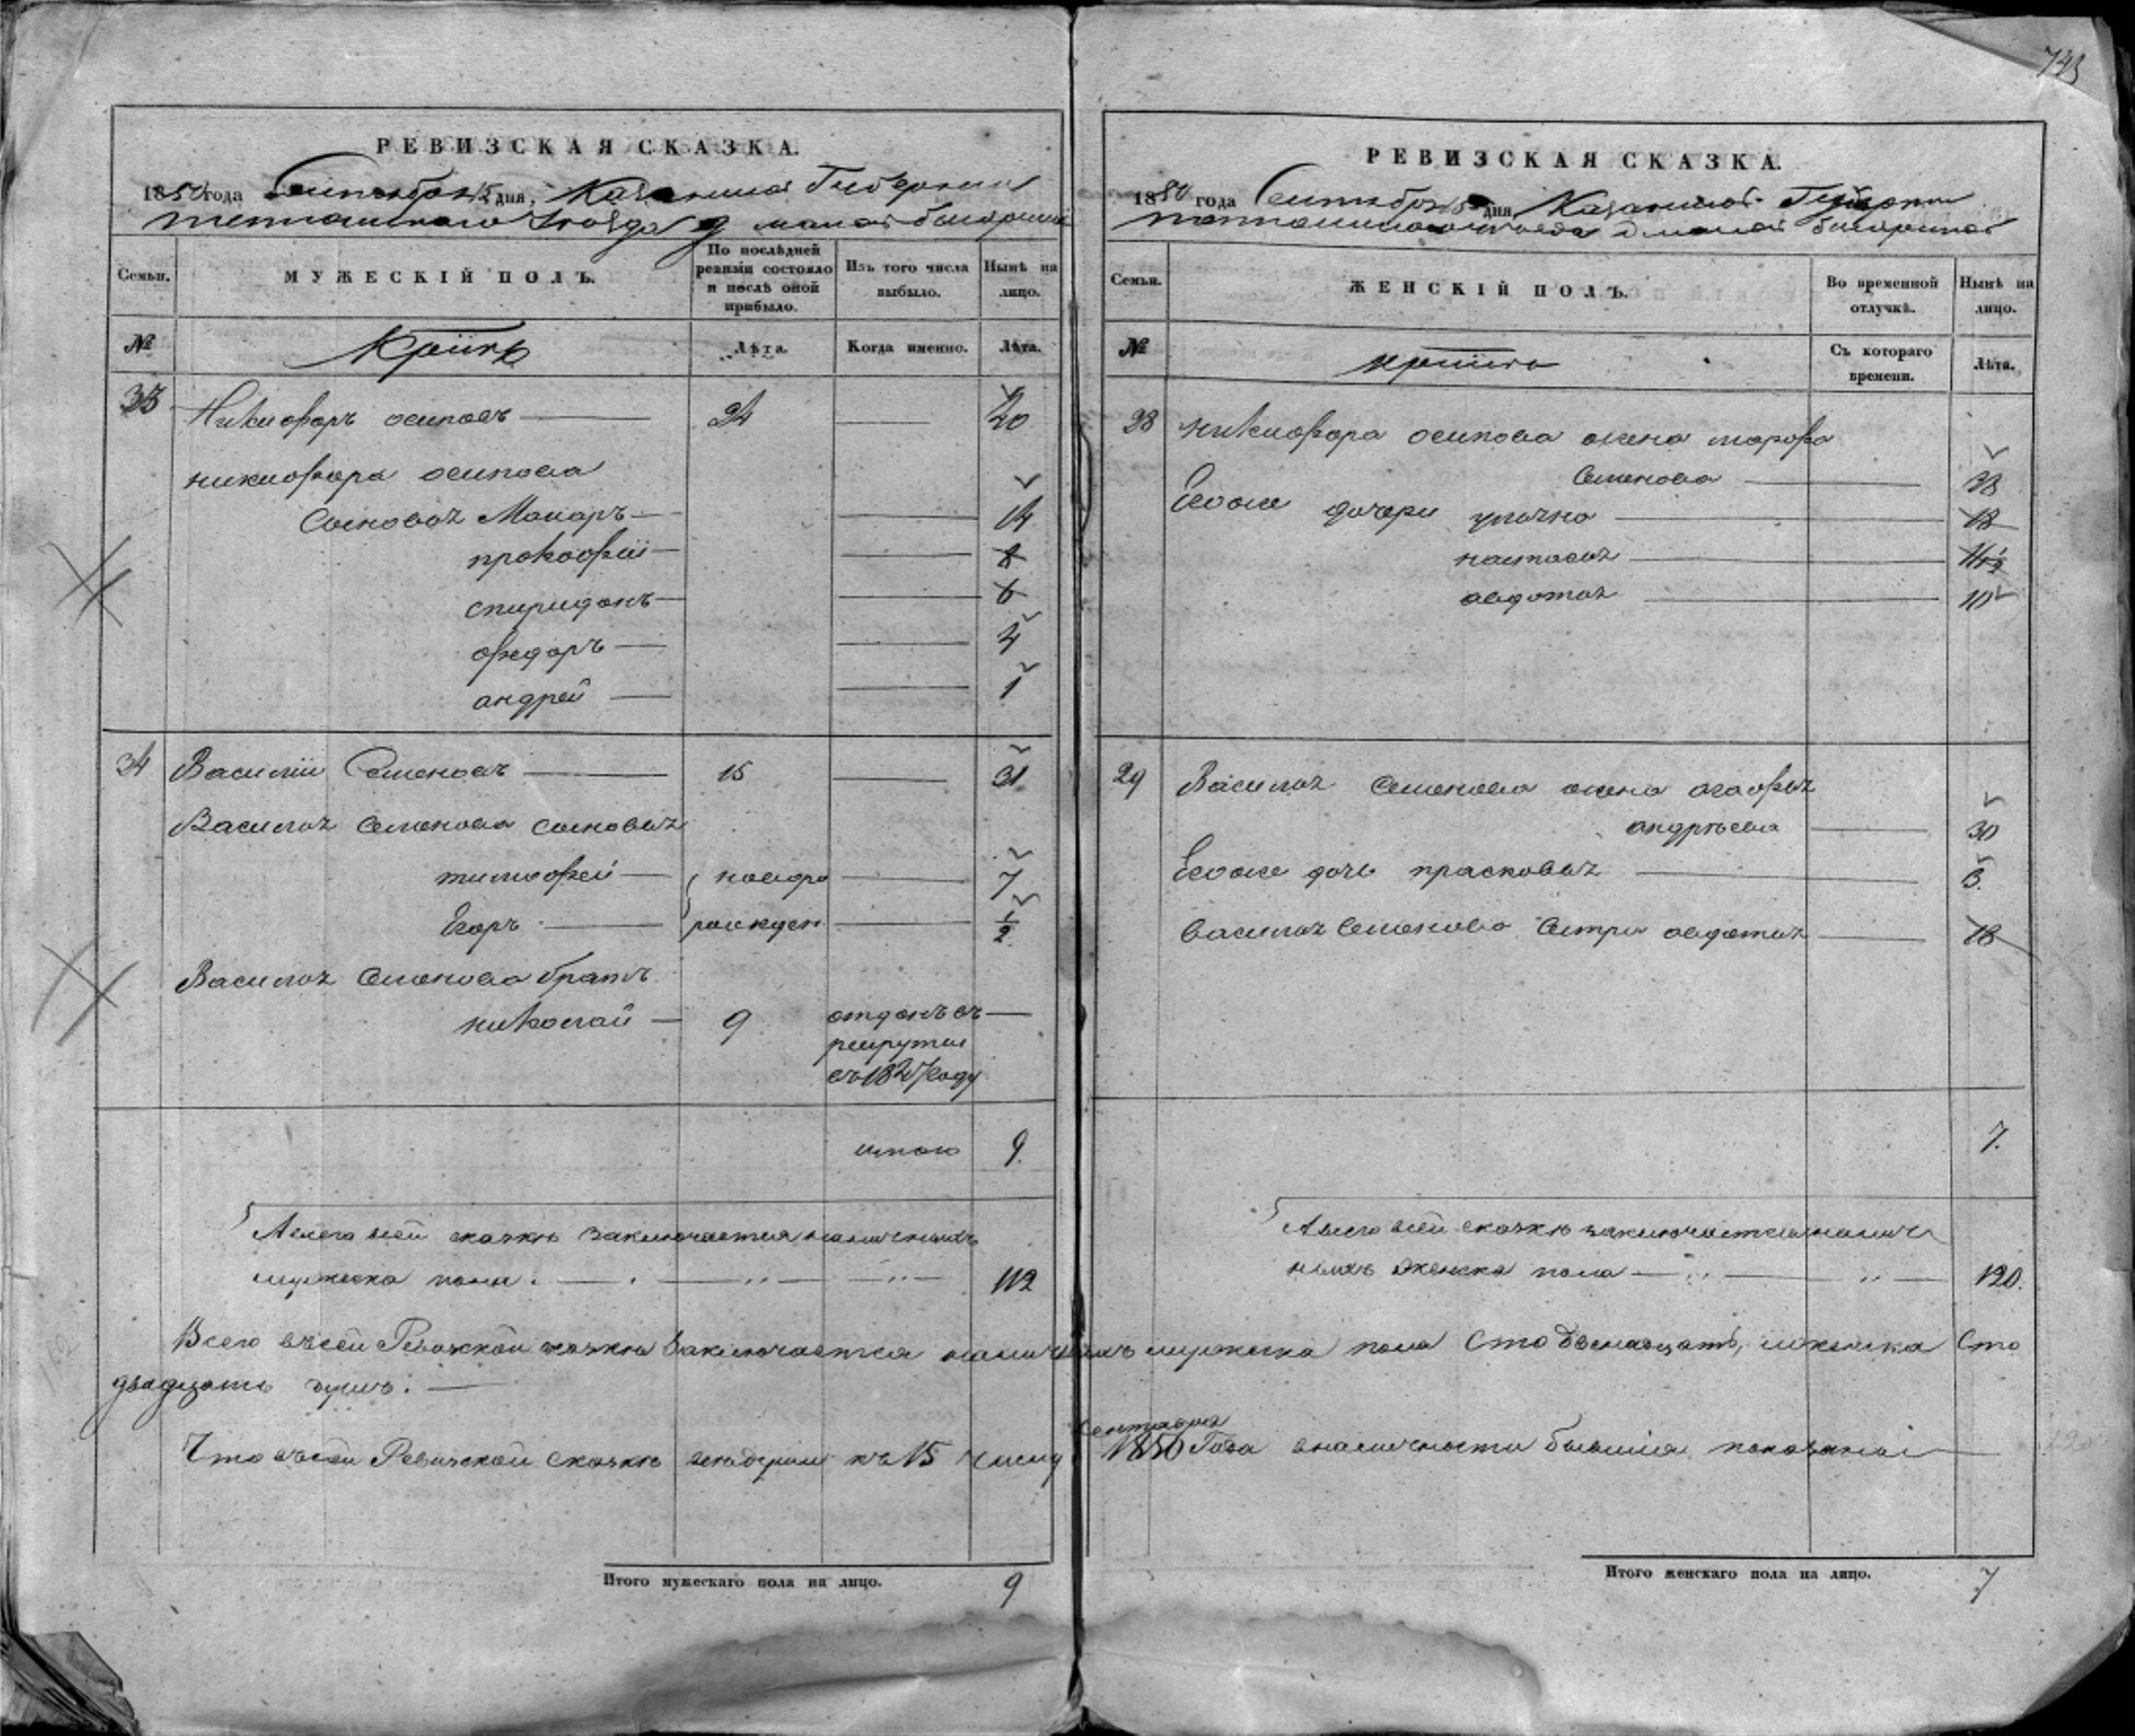 743
РЕВИЗСКАЯ СКАЗКА.
1850 года Сентября 15 дня, Казанской Губернии
тетюшского уезда д малой болярский
Семьи.
МУЖЕСКІЙ ПОЛЪ.
По послѣдней ревизіи состояло и послѣ оной прибыло.
Изъ того числа выбыло.
Нынѣ на лицо.
№
Лѣта.
Когда именно.
Лѣта.
33 Никифоръ осиповъ 24
никифора осипова
Сыновья Макаръ 14
прокофiй 8
спиридонъ 6
офедоръ 4
андрей 1
34 Василiй Семеновъ 15 31
Василья Семенова сыновья
тимофей новоро 7
Егоръ рожден 1/2
Василья Семенова братъ
николай 9 отданъ въ
рекруты
въ 1847 году
итого 9.
Авсего всей сказкѣ заключается наличныхъ
мужеска пола 112
РЕВИЗСКАЯ СКАЗКА.
1850 года Сентября 15 дня Казанской Губернии
тетюшского уезда д малой
Семьи.
ЖЕНСКІЙ ПОЛЪ.
Во временной отлучкѣ.
Нынѣ на лицо.
№
Съ котораго времени.
Лѣта.
28 никифора осипова жена марфа
Семенова 38
Евоже дочери 18
настасья
авдотья 10
29 Василья Семенова жена агафья
андрѣева 30
Евоже дочь прасковья 6.
Василья Семенова сестра авдотья 18
7.
Авсего всей сказкѣ заключается налич
ныхъ женска пола 120.
Всего въсей Ревижкой сказкѣ заключается наличныхъ мужеска пола Сто двенадцать, женска Сто
двадцать душъ.
Сентября
Что въсей Ревижской сказкѣ все души къ 15 числу 1850 Года вналичности бывшия показаны
Итого мужескаго пола на лицо. 9
Итого женскаго пола на лицо. 7